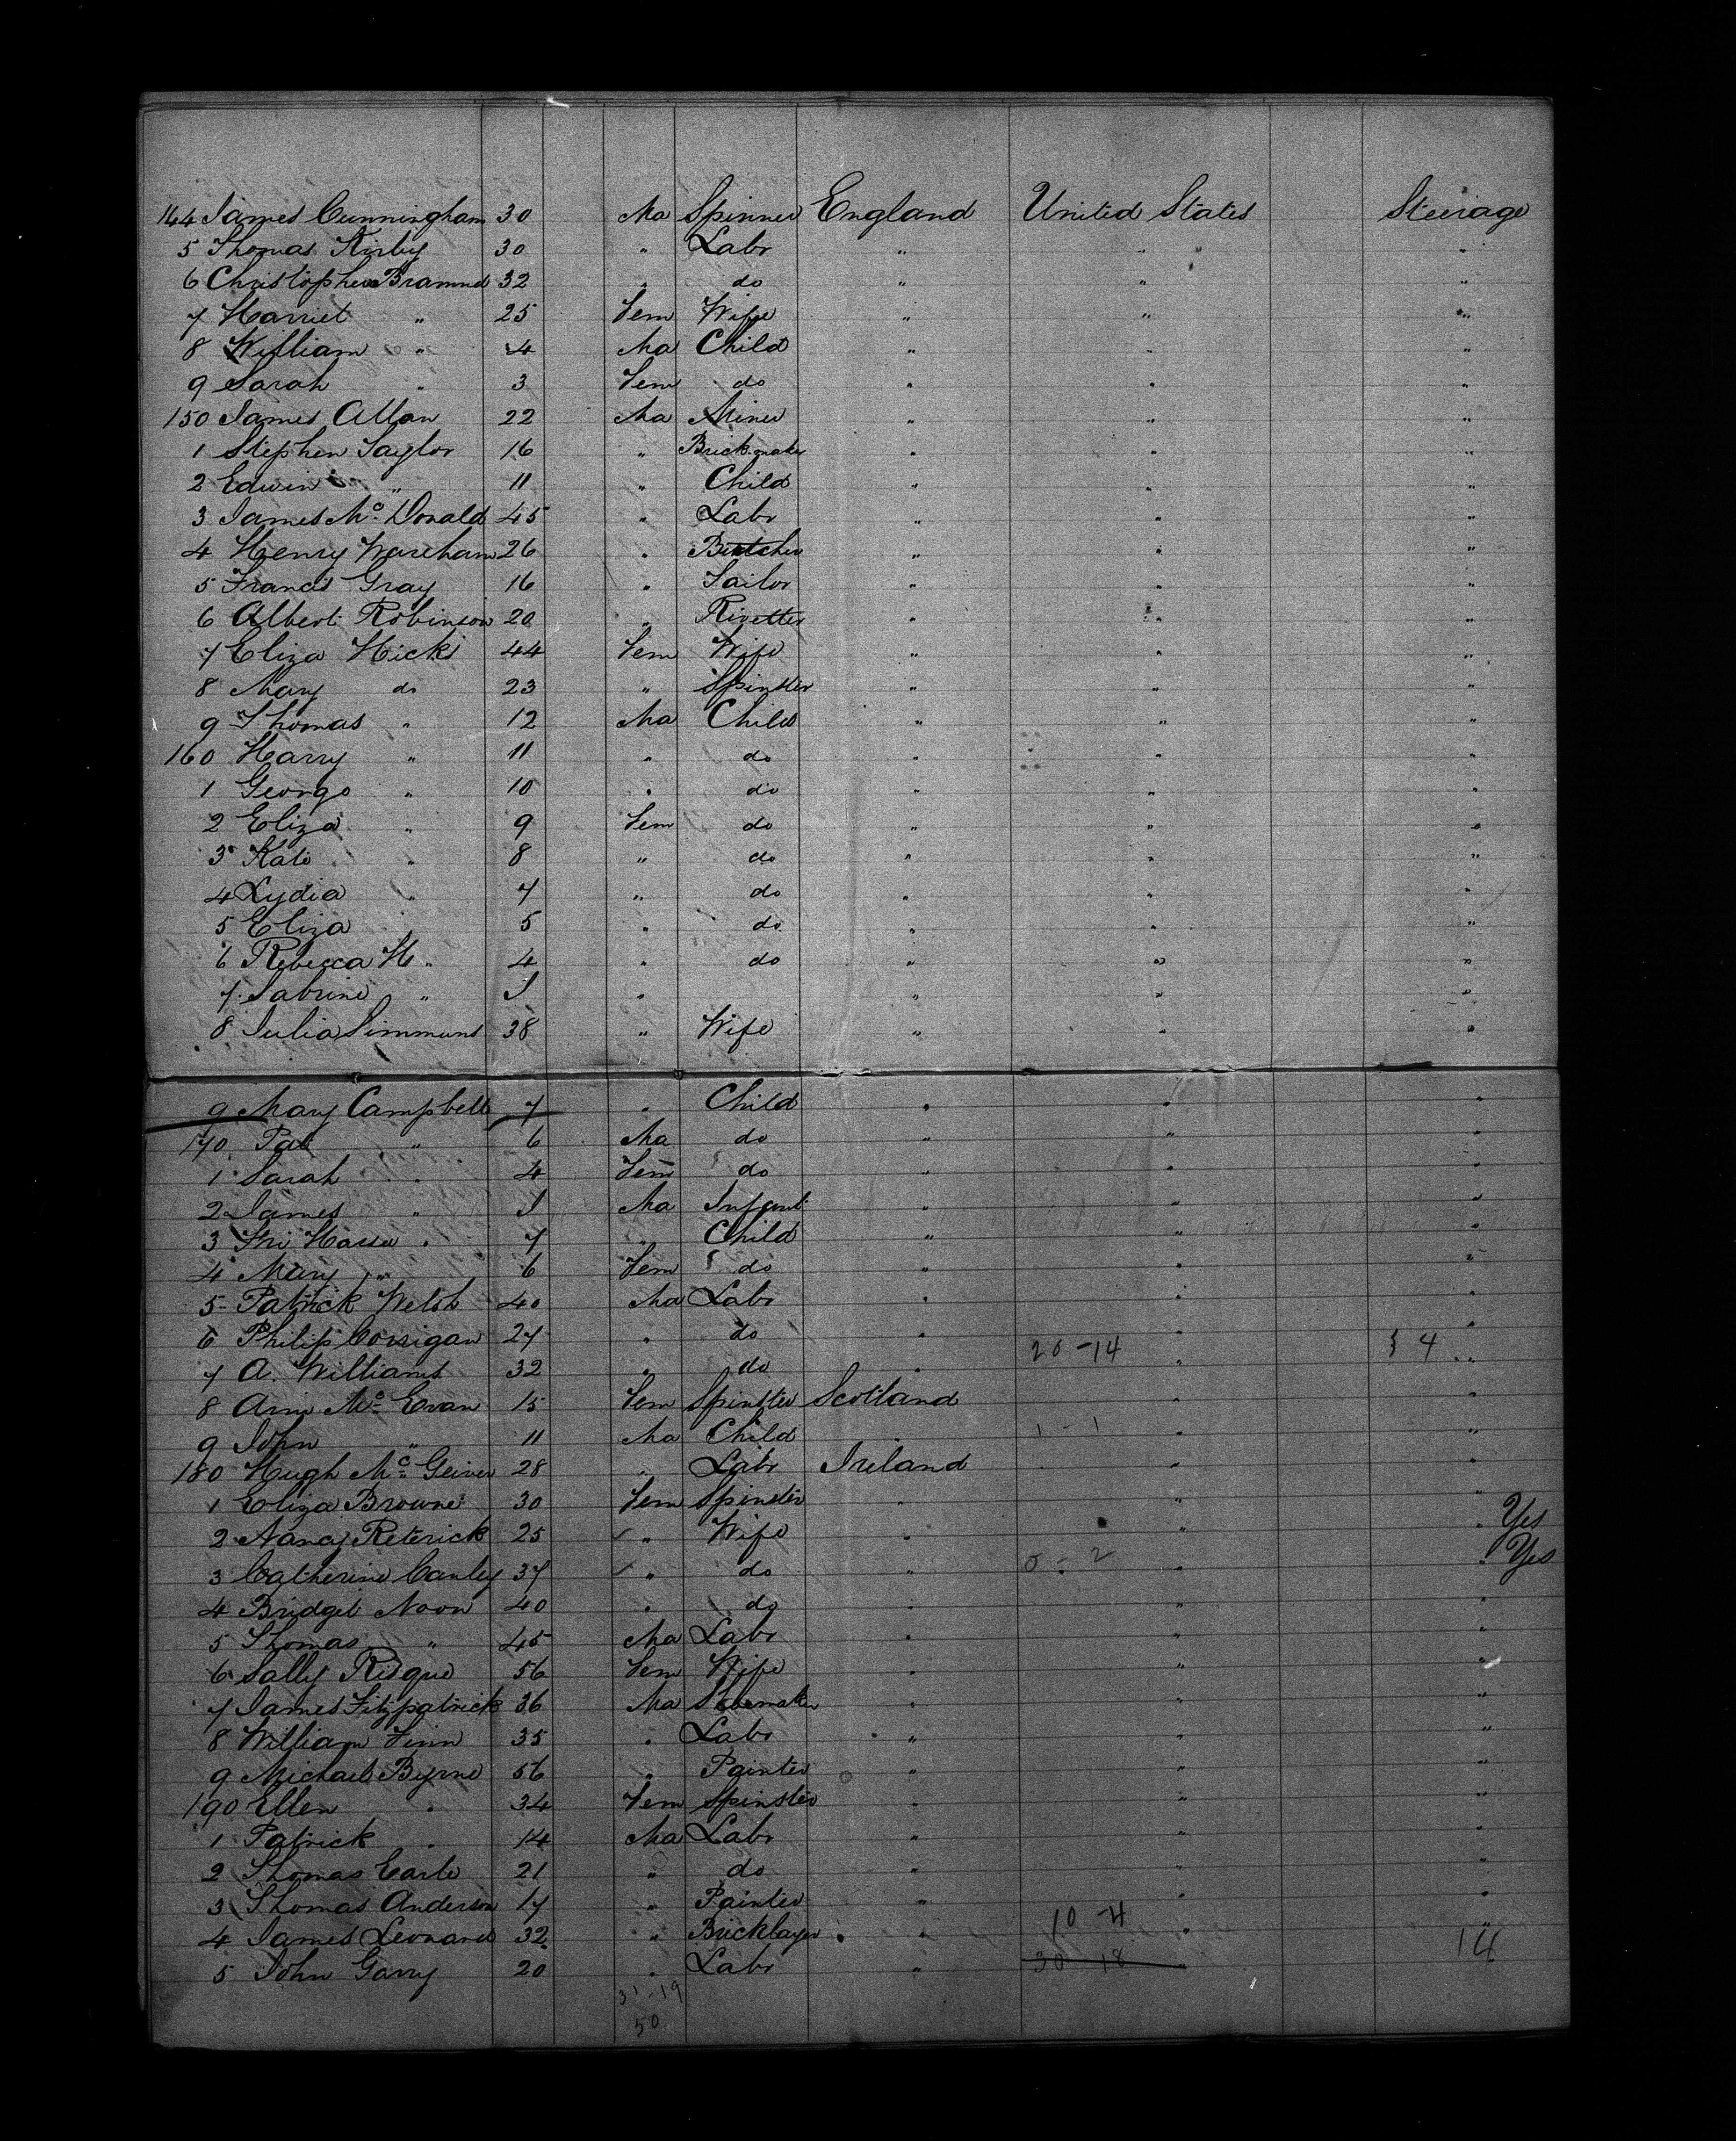 144 James Cunningham 30 Ma Spinner England United States Steerage
5 Thomas Kirby 30 " Labr " " "
6 Christopher 32 " do " " "
7 Harriet " 25 Fem Wife " " "
8 William " 4 Ma Child " " "
9 Sarah " 3 Fem do " " "
150 James Allan 22 Ma Miner " " "
1 Stephen Taylor 16 " Brickmaker " " "
2 Edwin " 11 " Child " " "
3 James Mc Donald 45 " Labr " " "
4 Henry Wareham 26 " Butcher " " "
5 Francis Gray 16 " Tailor " " "
6 Albert Robinson 20 " Rivetter " " "
7 Eliza Hicks 44 Fem Wife " " "
8 Mary do 23 " Spinster " " "
9 Thomas " 12 Ma Child " " "
160 Harry " 11 " do " " "
1 George " 10 " do " " "
2 Eliza " 9 Fem do " " "
3 Kate " 8 " do " " "
4 Lydia " 7 " do " " "
5 Eliza " 5 " do " " "
6 Rebecca H " 4 " do " " "
7 Sabrine " " " " "
8 Julia Simmons 38 " Wife " " "
9 Mary Campbell 7 " Child " " "
170 Pat " 6 Ma do " " "
1 Sarah " 4 Fem do " " "
2 James " Ma Infant " " "
3 7 " Child " " "
4 Mary " 6 Fem do " " "
5 Patrick Welsh 40 Ma Labr " " "
6 Philip Corrigan 27 " do " " "
7 A. Williams 32 " do " 20-14 " 4 "
8 Mc Evan 15 Fem Spinster Scotland " "
9 John " 11 Ma Child " 1-1 " "
180 Hugh Mc Geiver 28 " Labr Ireland " "
1 Eliza Browne 30 Fem Spinster " " "
2 Nancy Reterick 25 " Wife " " " Yes
3 Catherine Canley 37 " do " 0-2 " " Yes
4 Bridget Noon 40 " do " " "
5 Thomas " 45 Ma Labr " " "
6 Sally Risque 56 Fem Wife " " "
7 James Fitzpatrick 36 Ma Shoemaker " " "
8 William Finn 35 " Labr " " "
9 Michael Byrne 56 " Painter " " "
190 Ellen " 34 Fem Spinster " " "
1 Patrick " 14 Ma Labr " " "
2 Thomas Earle 21 " do " " "
3 Thomas Anderson 17 " Painter " " "
4 James Leonard 32 " Bricklayer " 10-4 " "
5 John Garry 20 " Labr " 30 18 " 14
31-19
50